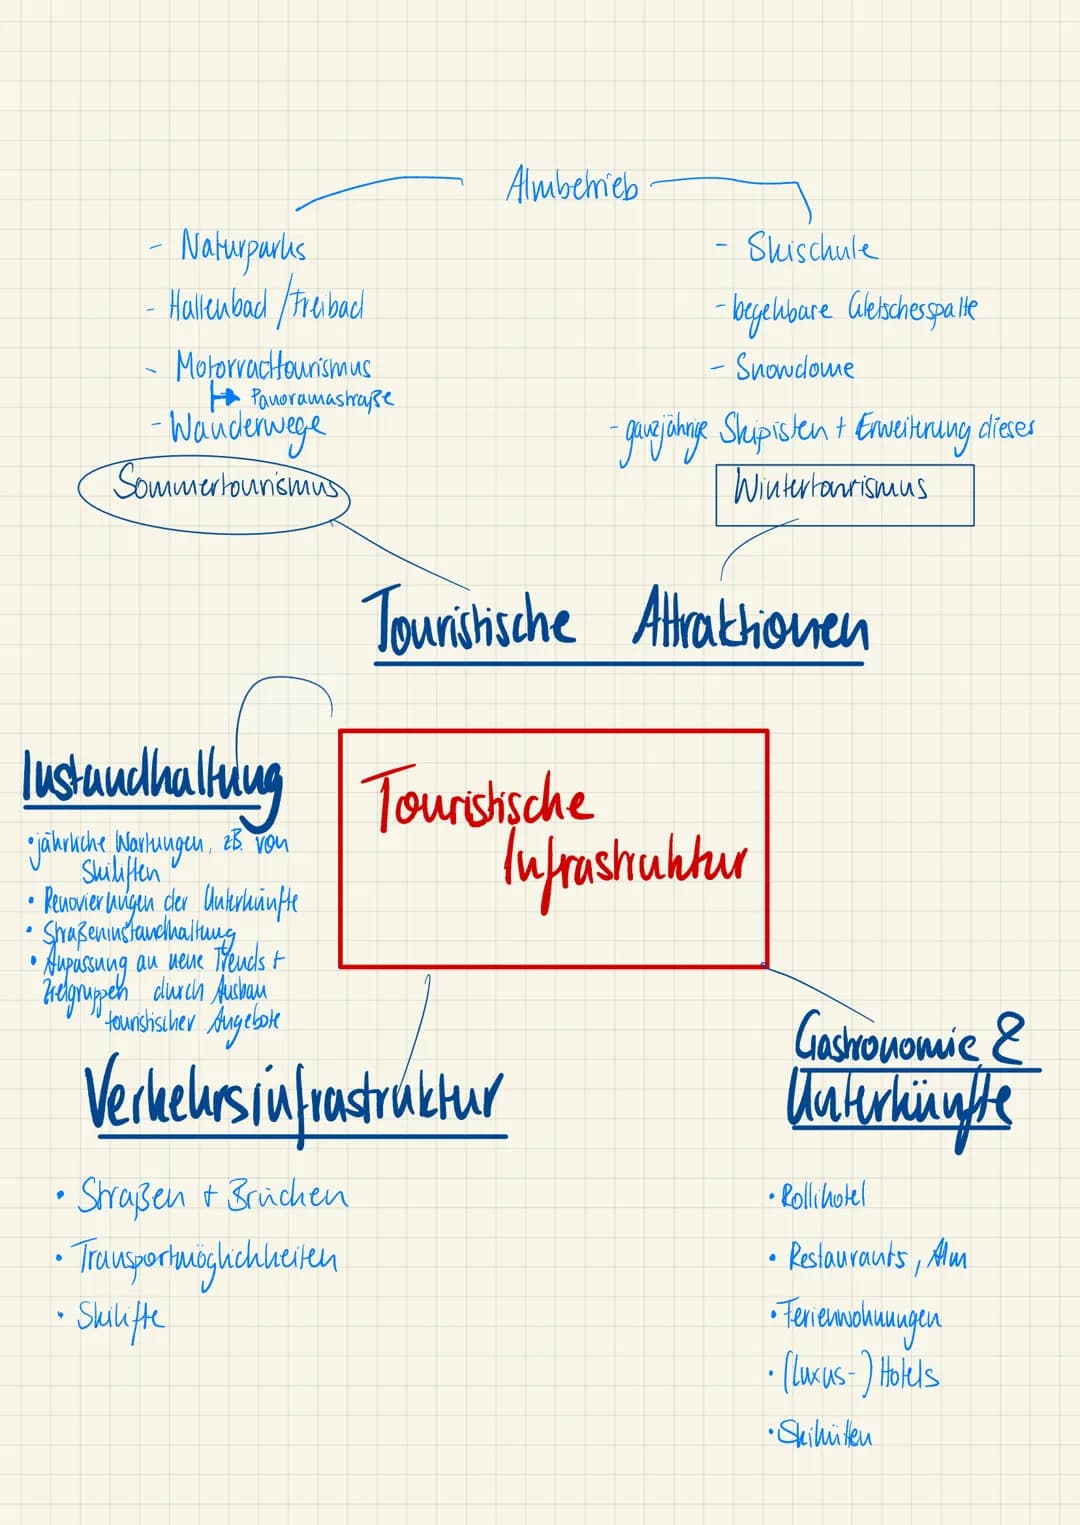 Almbetrieb
- Naturparks
- Hallenbad / Freibad
- Motorradtourismus
↦ Panoramastraße
- Wanderwege
Sommertourismus
- Skischule
- begehbare Gletschesspalte
- Snowdome
- ganzjährige Skipisten + Erweiterung dieser
Wintertourismus
Touristische Attraktionen
Touristische
Infrastruktur
Instandhaltung
• jährliche Wartungen, z.B. von
Skiliften
• Renovierungen der Unterkünfte
• Straßeninstandhaltung
• Anpassung an neue Trends +
Zielgruppen durch Ausbau
touristischer Angebote
Verkehrsinfrastruktur
• Straßen + Brücken
• Transportmöglichkeiten
• Skilifte
Gastronomie &
Unterkünfte
• Rollihotel
• Restaurants, Alm
• Ferienwohnungen
• (Luxus-) Hotels
• Skihütten